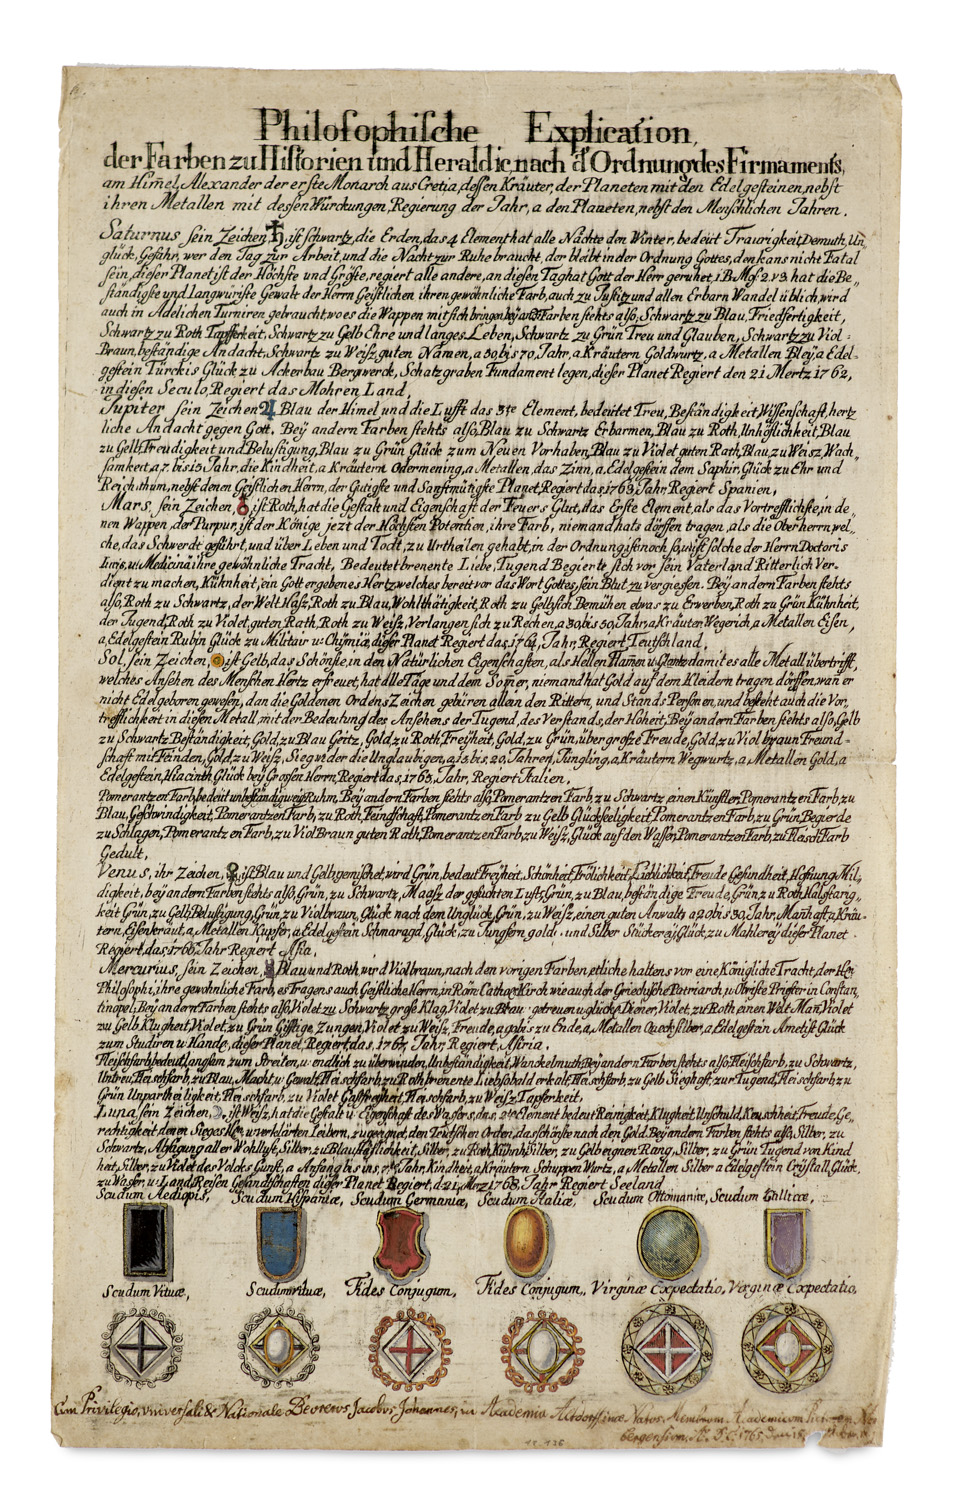 Philosophische Explication,
der Farben zu Historien und Heraldic, nach d' Ordnung des Firmaments,
am Him̅el, Alexander der erste Monarch aus Cretia, dessen Kräuter, der Planeten mit den Edelgesteinen, nebst
ihren Metallen mit dessen Würckungen, Regierung der Jahr, a den Planeten, nebst den Menschlichen Jahren.
Saturnus sein Zeichen, ♄, ist schwartz, die Erden, das 4 Element hat alle Nächte den Winter, bedeut Traurigkeit, Demuth, Un
glück, Gefahr, wer den Tag zur Arbeit, und die Nacht zur Ruhe braucht, der bleibt in der Ordnung Gottes, den kans nicht Fatal
sein, dieser Planet ist der Höchste und Gröste, regiert alle andere, an diesen Tag hat Gott der Herr geruhet, 1 B Mos 2 v 3. hat die Be„
ständigste und langwürigste Gewalt der Herrn Geistlichen ihren gewöhnliche Farb, auch zu Justitz und allen Erbarn Wandel üblich, wird
auch in Adelichen Turniren gebraucht, wo es die Wappen mit sich bringen, bey andern Farben stehts also, Schwartz zu Blau, Friedfertigkeit,
Schwartz zu Roth Tapfferkeit, Schwartz zu Gelb Ehre und langes Leben, Schwartz zu Grün Treu und Glauben, Schwartz zu Viol-
Braun, beständige Andacht, Schwartz zu Weisz, guten Namen, a 50 bis 70, Jahr, a Kräutern Goldwurtz, a Metallen Bley, a Edel-
gestein Türckis Glück zu Ackerbau Bergwerck, Schatzgraben Fundament legen, dieser Planet Regiert den 21 Mertz 1762,
in diesen Seculo, Regiert das Mohren Land,
Jupiter sein Zeichen ♃, Blau der Himel und die Lufft das 3te Element, bedeutet Treu, Beständigkeit, Wissenschaft, hertz
liche Andacht gegen Gott. Bey andern Farben stehts also, Blau zu Schwartz Erbarmen, Blau zu Roth, Unhöflichkeit, Blau
zu Gelb, Freudigkeit und Belustigung, Blau zu Grün Glück zum Neuen Vorhaben, Blau zu Violet guten Rath, Blau, zu Weisz, Wach„
samkeit, a 7 bis 15 Jahr, die Kindheit, a Kräutern Odermening, a Metallen, das Zinn, a, Edelgestein dem Saphir, Glück zu Ehr und
Reichthum, nebst denen Geistlichen Herrn, der Gutigste und Sanftmütigste Planet, Regiert das, 1763, Jahr Regiert Spanien,
Mars, sein Zeichen, ♂, ist Roth, hat die Gestalt und Eigenschaft der Feuers Glut, das Erste Element, als das Vortrefflichste, in de„
nen Wappen, der Purpur, ist der Könige jezt der Höchsten Potentien, ihre Farb, niemand hats dörffen tragen, als die Oberherrn, wel„
che, das Schwerdt geführt, und über Leben und Todt, zu Urtheilen gehabt, in der Ordnung, ist noch so, wist solche der Herrn Doctoris
Iuris, u: Medicinä ihre gewöhnliche Tracht, Bedeutet brenente Liebe, Tugend Begierte sich vor sein Vaterland Ritterlich Ver-
dient zu machen, Kühnheit, ein Gott ergebenes Hertz, welches bereit vor das Wort Gottes, sein Blut zu vergiessen. Bey andern Farben stehts
also, Roth zu Schwartz, der Welt Hasz, Roth zu Blau, Wohlthätigkeit, Roth zu Gelb, sich Bemühen etwas zu Erwerben, Roth zu Grün Kühnheit,
der Jugend, Roth zu Violet, guten Rath, Roth zu Weisz, Verlangen sich zu Rechen, a 30 bis 50, Jahr, a Kräuter, Wegerich, a Metallen Eisen,
a, Edelgestein Rubin Glück zu Militair u: Chymiæ, dieser Planet Regiert das, 1764, Jahr, Regiert, Teutschland.
Sol, sein Zeichen, ☉, ist Gelb, das Schönste, in den Natürlichen Eigenschaften, als Hellen Flam̅en u: Glantz, damit es alle Metall übertrifft,
welches Ansehen des Menschen Hertz erfreuet, hat alle Tage und dem Som̅er, niemand hat Gold auf dem Kleidern tragen dörffen, wan er
nicht Edelgeboren gewesen, dan die Goldenen Ordens Zeichen gebüren allein den Rittern, und Stands Personen, und besteht auch die Vor,
trefflichkeit in diesen Metall, mit der Bedeutung des Ansehens der Tugend, des Verstands, der Hoheit, Bey andern Farben stehts also, Gelb
zu Schwartz Beständigkeit, Gold, zu Blau Geitz, Gold, zu Roth Freyheit, Gold, zu Grün, über grosze Freude, Gold, zu Violbraun Freund-
schaft mit Feinden, Gold, zu Weisz, Sieg wider die Unglaubigen, a, 15 bis, 20, Jahren, Jüngling, a, Kräutern Wegwurtz, a Metallen Gold, a
Edelgestein, Hiacinth Glück bey Grossen Herrn, Regiert das, 1765, Jahr, Regiert Italien.
Pomerantzen Farb, bedeut unbeständig weis Ruhm, Bey andern Farben stehts also, Pomerantzen Farb, zu Schwartz, einen Künstler, Pomerantzen Farb, zu
Blau, Geschwindigkeit, Pomerantzen Farb, zu Roth, Feindschaft, Pomerantzen Farb zu Gelb Glückseeligkeit, Pomerantzen Farb, zu Grün, Begierde
zu Schlagen, Pomerantzen Farb, zu Viol Braun guten Rath, Pomerantzen Farb, zu Weisz, Glück auf den Wasser, Pomerantzen Farb, zu Fleisch Farb
Gedult.
Venus, ihr Zeichen, ♀, ist Blau und Gelb gemischet, wird Grün, bedeut Freyheit, Schönheit, Frölichkeit, Lieblichkeit, Freude Gesundheit, Hofnung, Mil-
digkeit, bey andern Farben stehts also, Grün, zu Schwartz, Maasz der gesuchten Lust, Grün, zu Blau, beständige Freude, Grün zu Roth Halsstarig-
keit Grün, zu Gelb, Belustigung, Grün, zu Violbraun, Glück nach dem Unglück, Grün, zu Weisz, einen guten Anwalt, a 20 bis 30, Jahr, Manhaft, a Kräu-
tern, Eisenkraut, a, Metallen Kupfer, a Edelgestein Schmaragd, Glück, zu Jungfern, gold. und Silber Stückerey, Glück, zu Mahlerey dieser Planet
Regiert, das, 1766, Jahr Regiert Asia.
Mercurius, sein Zeichen, ☿, Blau, und Roth, wird Violbraun, nach den vorigen Farben, etliche haltens vor eine Königliche Tracht, der Hei
Philosophi, ihre gewöhnliche Farb, es Tragens auch Geistliche Herrn, in Röm: Cathol: Kirch wie auch der Griechische Patriarch, u: Obriste Priester in Constan,
tinopel, Bey andern Farben stehts also, Violet zu Schwartz grose Klag, Violet zu Blau getreuen u: glückl: Diener, Violet, zu Roth, einen Welt Man, Violet
zu Gelb Klugheit, Violet, zu Grün Gifftige Zungen, Violet zu Weisz, Freude, a, 70 bis zu Ende, a, Metallen Quecksilber, a Edelgestein Ametist Glück
zum Studiren u: Handel, dieser Planet, Regiert, das, 1767, Jahr, Regiert, Assiria.
Fleischfarb, bedeut, langsam zum Streiten, u: endlich zu überwinden, Unbeständigkeit, Wanckelmuth, Bey andern Farben stehts also, Fleischfarb, zu Schwartz,
Untreu, Fleischfarb, zu Blau, Macht u: Gewalt, Fleischfarb, zu Roth brenente Lieb, so bald erkalt, Fleischfarb, zu Gelb Sieghaft, zur Tugend, Fleischfarb zu
Grün Unpartheiligkeit, Fleischfarb, zu Violet Gastfreyheit, Fleischfarb, zu Weisz Tapferkeit.
Luna, sein Zeichen, ☽, ist Weisz, hat die Gestalt u: Eigenschaft des Wassers, dns, 2te Element bedeut Reinigkeit, Klugheit Unschuld, Keuschheit, Freude, Ge,
rechtigkeit denen Sieges u: verklärten Leibern, zugeeignet, den Teutschen Orden, das schönste nach den Gold. Bey andern Farben stehts also, Silber, zu
Schwartz, Absagung aller Wohllust, Silber, zu Blau Höflichkeit, Silber, zu Roth Kühnh: Silber, zu Gelb eignen Rang, Silber, zu Grün Tugend von Kind
heit, Silber, zu Violet des Volcks Gunst, a Anfang bis uns, 7te, Jahr, Kindheit, a Kräutern, Schuppen Wurtz, a, Metallen Silber a Edelgestein Crÿstall, Glück,
zu Wasser, u: Land Reisen Gesandschaften dieser Planet Regiert, d. 21 Merz 1768, Jahr Regiert Seeland
Scudum Aediopis, Scudum Hispaniæ, Scudum Germaniæ, Scudum Italiæ, Scudum Ottomaniæ, Scudum Gallicæ,
Scudum Vituæ, Scudum vituæ, Fides Conjugum, Fides Conjugum, Virginæ Expectatio, Virginæ Expectatio,
Cum Privilegio, vniversali & Nationale Devterus Jacobvs Johannes, in Academia Altdorffinæ Natvs. Membrum Academicvm
bergensium, A. S. C. 1765, den 18